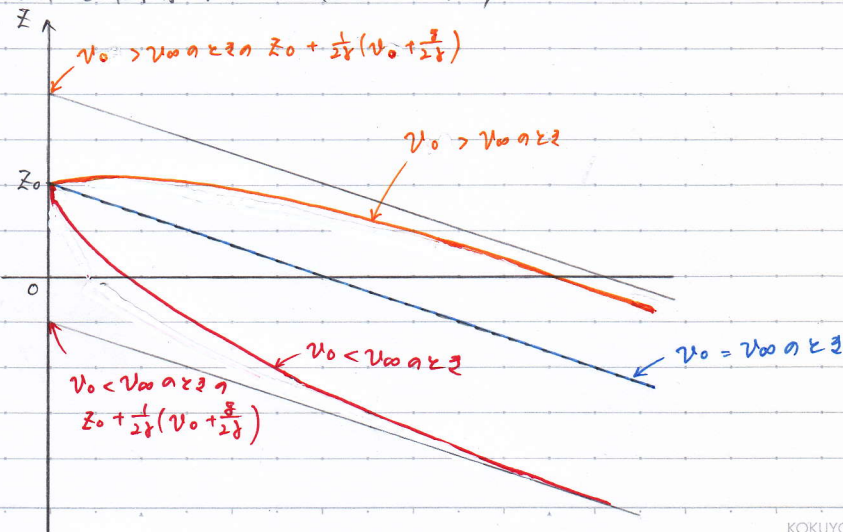 Z
v₀ > v∞ のときの Z₀ + 1/2γ (v₀ + g/2γ)
v₀ > v∞ のとき
Z₀
0
v₀ = v∞ のとき
v₀ < v∞ のとき
v₀ < v∞ のときの
Z₀ + 1/2γ (v₀ + g/2γ)
KOKUYO